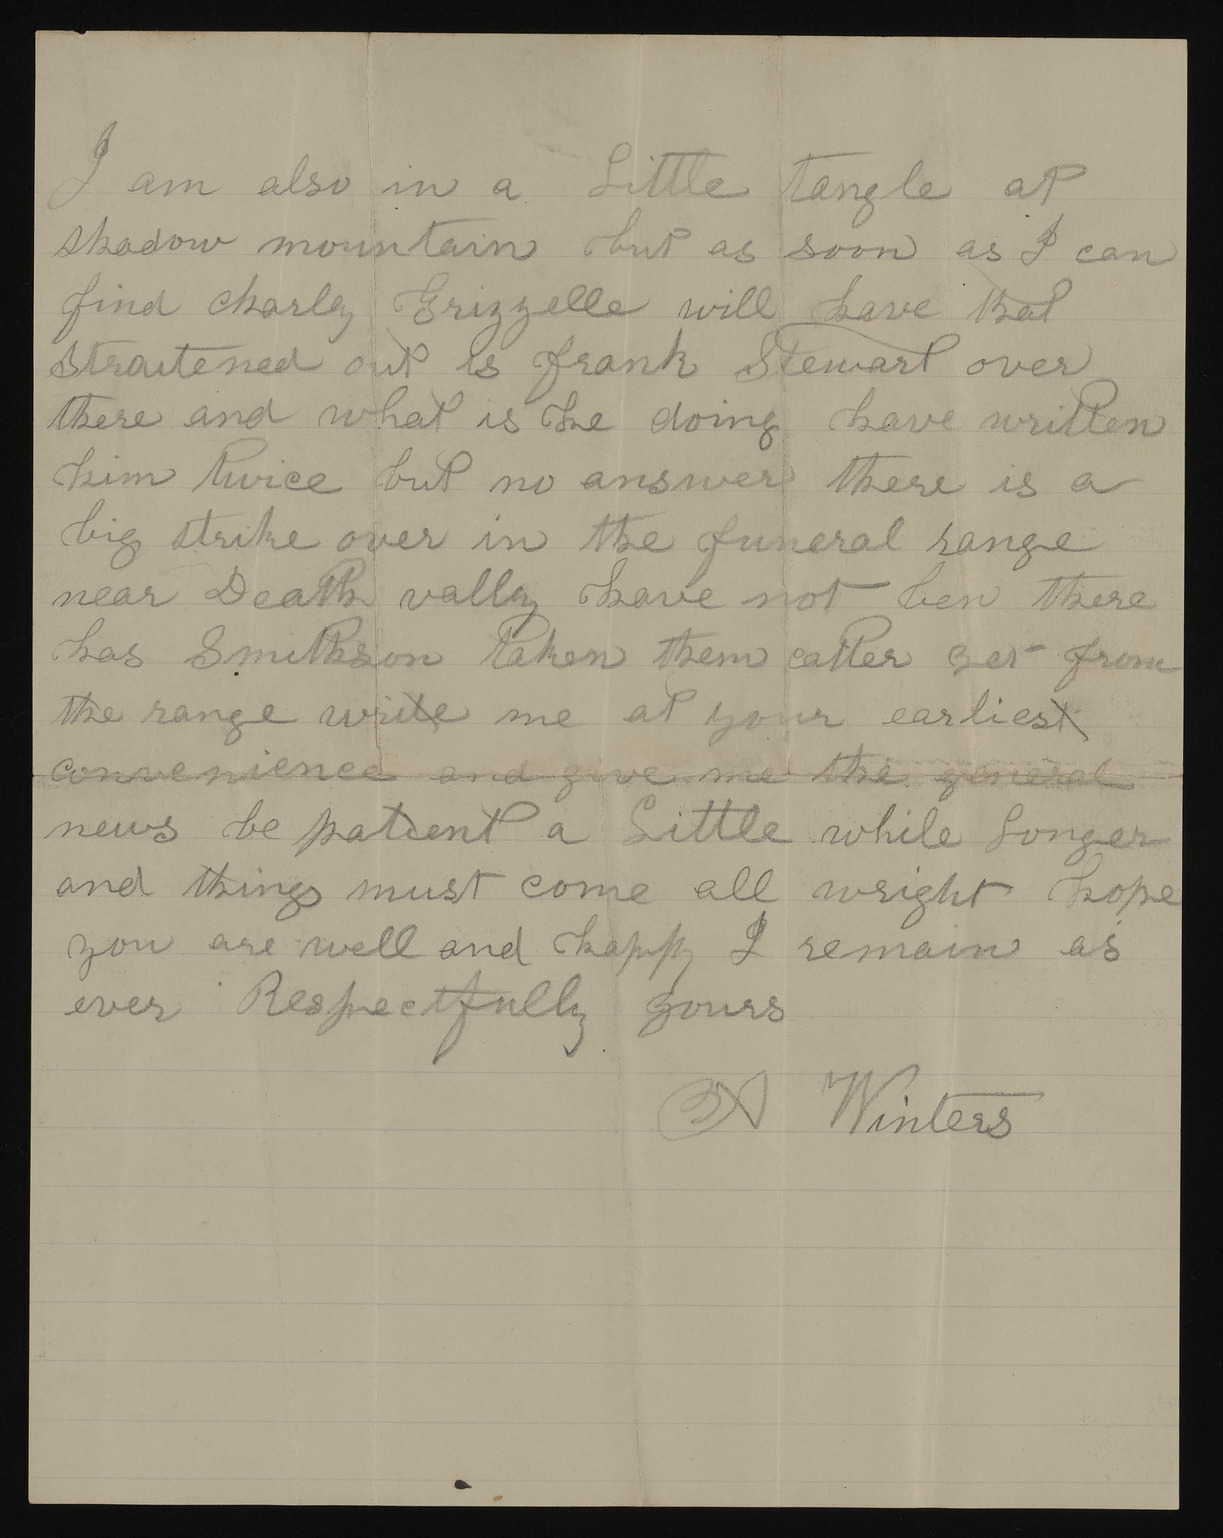 I am also in a Little tangle at
shadow mountain but as soon as I can
find charley Grizzelle will have that
straitened out is frank Stewart over
there and what is he doing have written
him twice but no answer there is a
big strike over in the funeral range
near Death vally have not ben there
has Smithson taken them catler yet from
the range write me at your earliest
convenience and give me the general
news be patient a Little while Longer
and things must come all wright hope
you are well and happy I remain as
ever Respectfully yours
A Winters